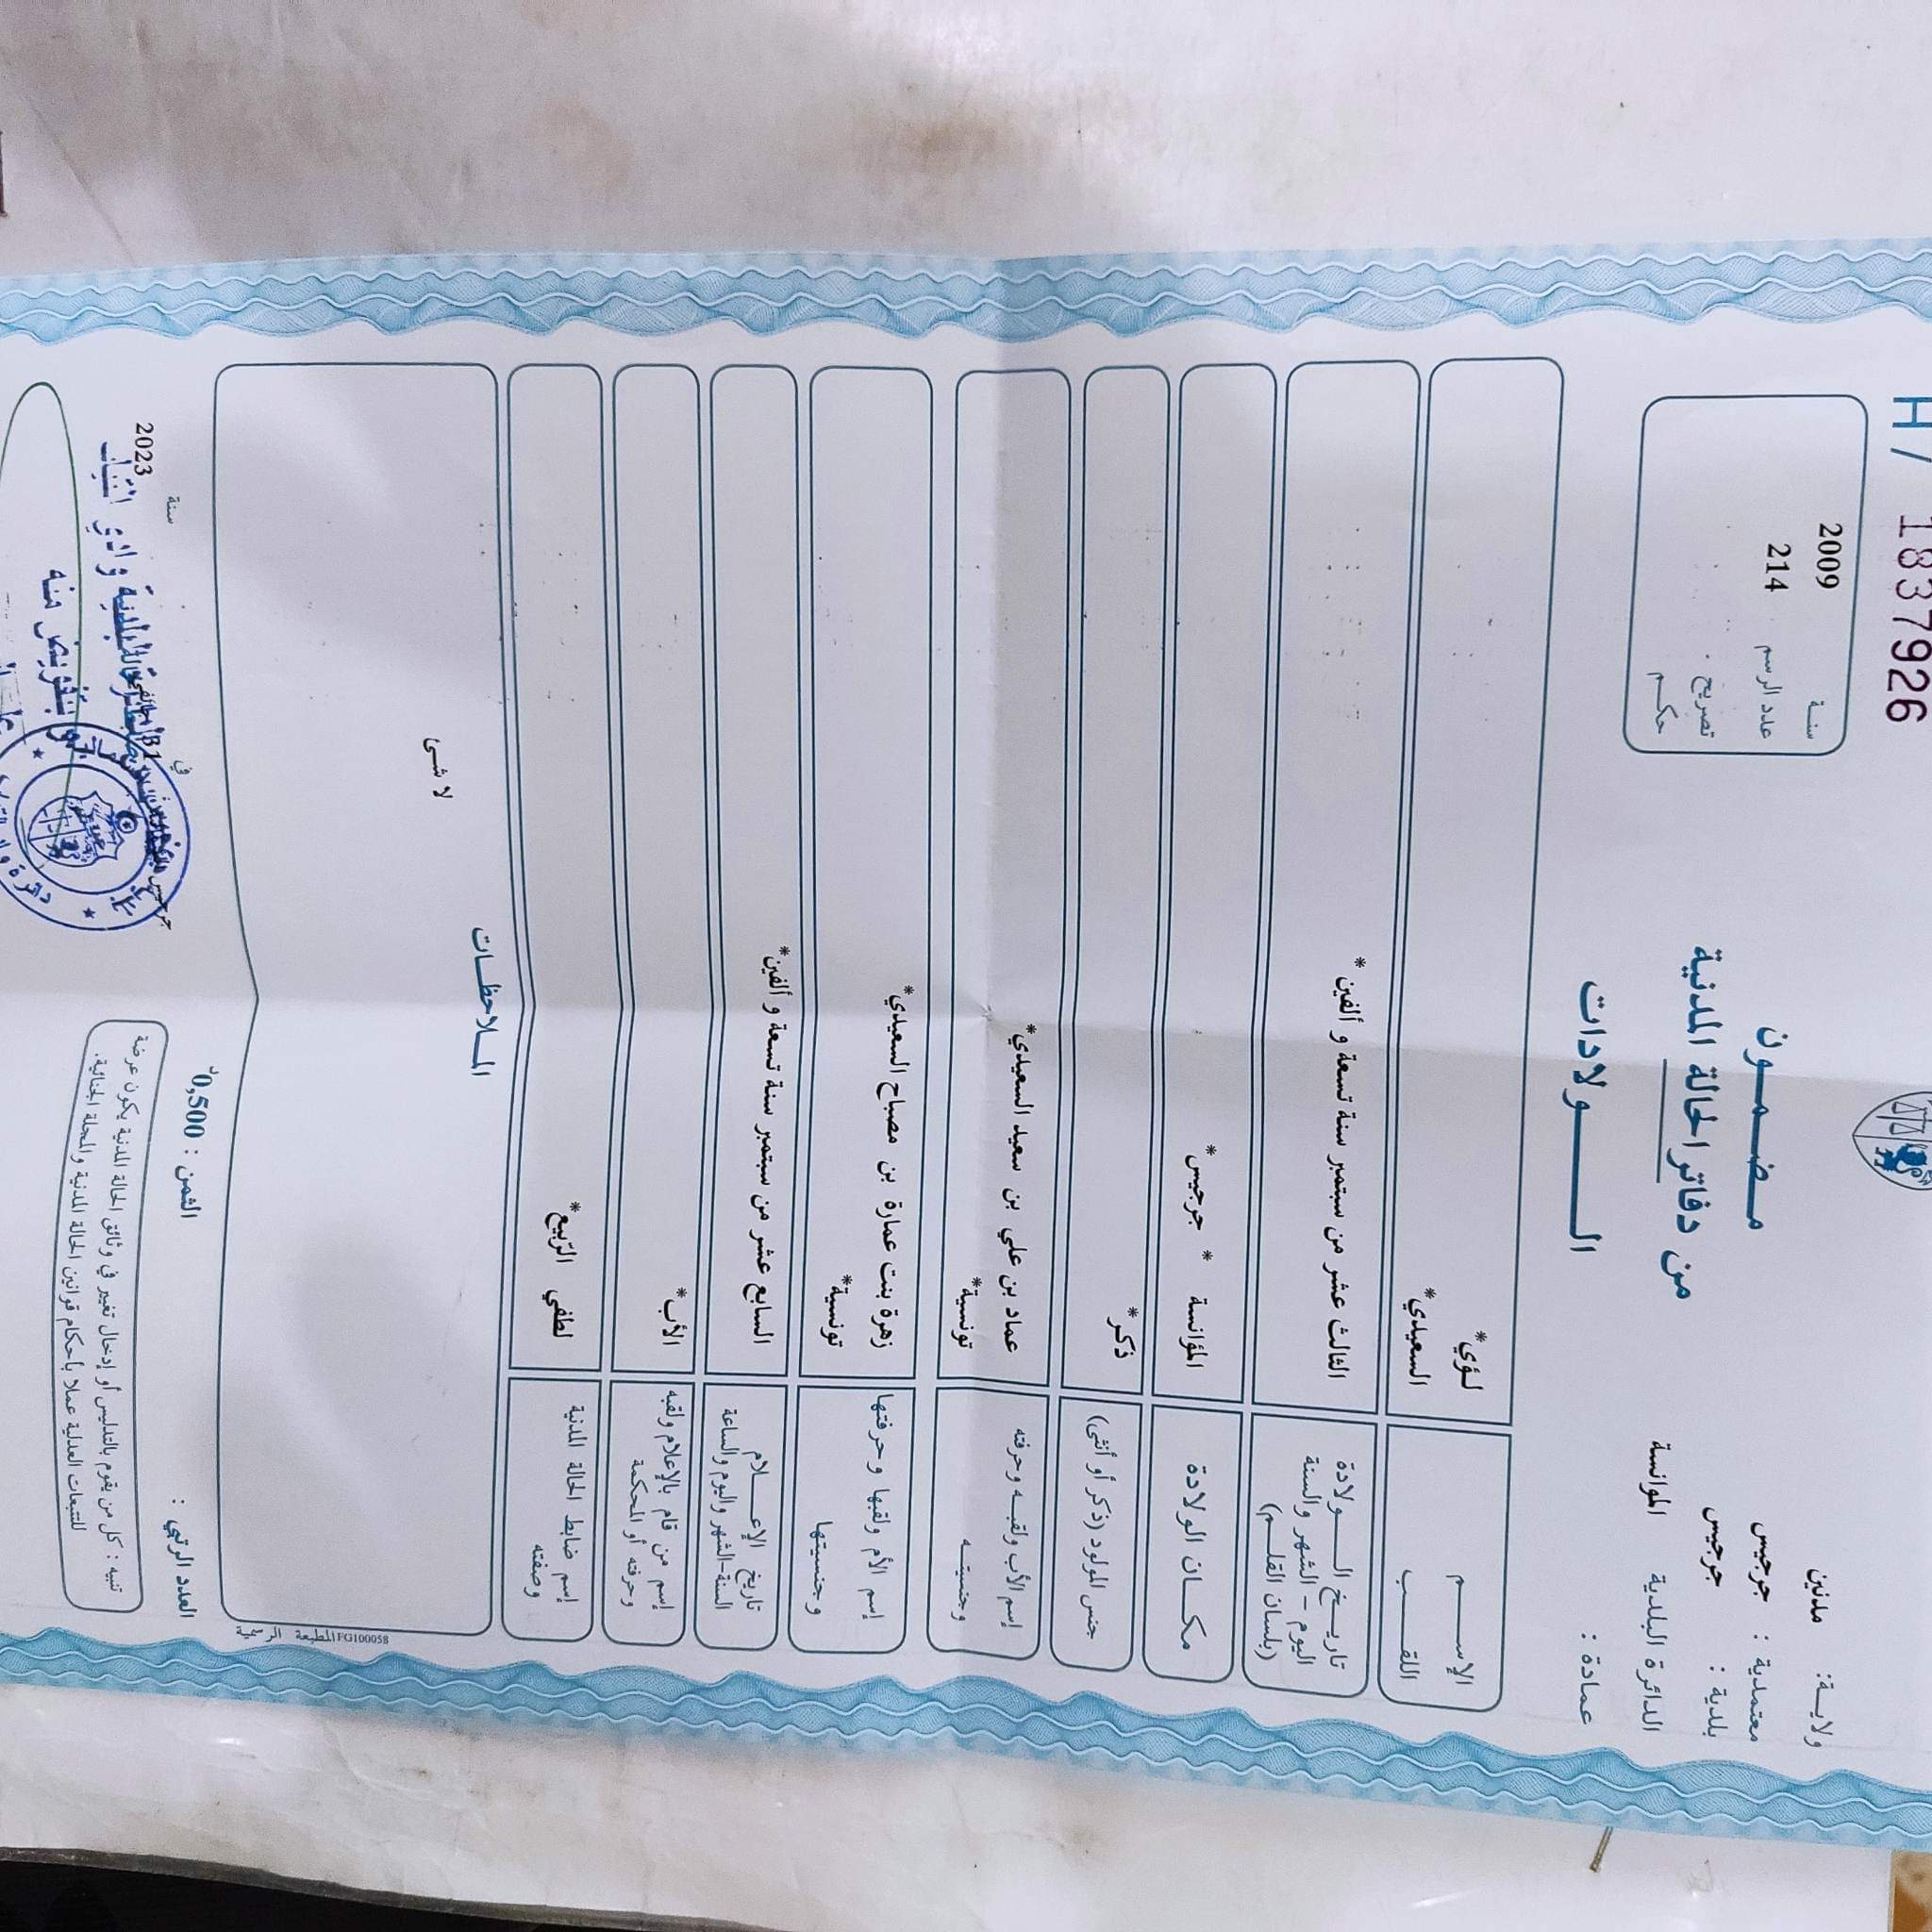 H/ 1837926
ولايـة: مدنين
معتمدية : جرجيس
بلدية : جرجيس
الدائرة البلدية المؤانسة
عمادة :
مـضـمـــون
من دفاتر الحالة المدنية
الــــــولادات
سنـة 2009
عدد الرسم 214
تصريح
حكـم
الإســـــم لـؤي*
اللقـــب السعيدي*
تاريـــخ الـــــولادة
اليوم - الشهر والسنة
(بلسان القلـم)
الثالث عشر من سبتمبر سنة تسعة و ألفين *
مكـــان الولادة المؤانسة * جرجيس *
جنس المولود (ذكر أو أنثى) ذكر*
إسم الأب ولقبـه وحرفته عماد بن علي بن سعيد السعيدي*
وجنسيتـه تونسية*
إسم الأم ولقبها وحرفتها زهرة بنت عمارة بن مصباح السعيدي*
وجنسيتها تونسية*
تاريخ الإعـــلام
السنة-الشهر واليوم والساعة
السابع عشر من سبتمبر سنة تسعة و ألفين*
إسم من قام بالإعلام ولقبه
وحرفته أو المحكمة
الأب*
إسم ضابط الحالة المدنية
وصفته
لطفي الربيع*
المـلاحظـات
لا شئ
FG100058 المطبعة الرسمية
العدد الرتبي :
الثمن : 0,500د
في
سنة 2023
تنبيه : كل من يقوم بالتدليس أو إدخال تغيير في وثائق الحالة المدنية يكون عرضة
للتتبعات العدلية عملا بأحكام قوانين الحالة المدنية والمجلة الجنائية.